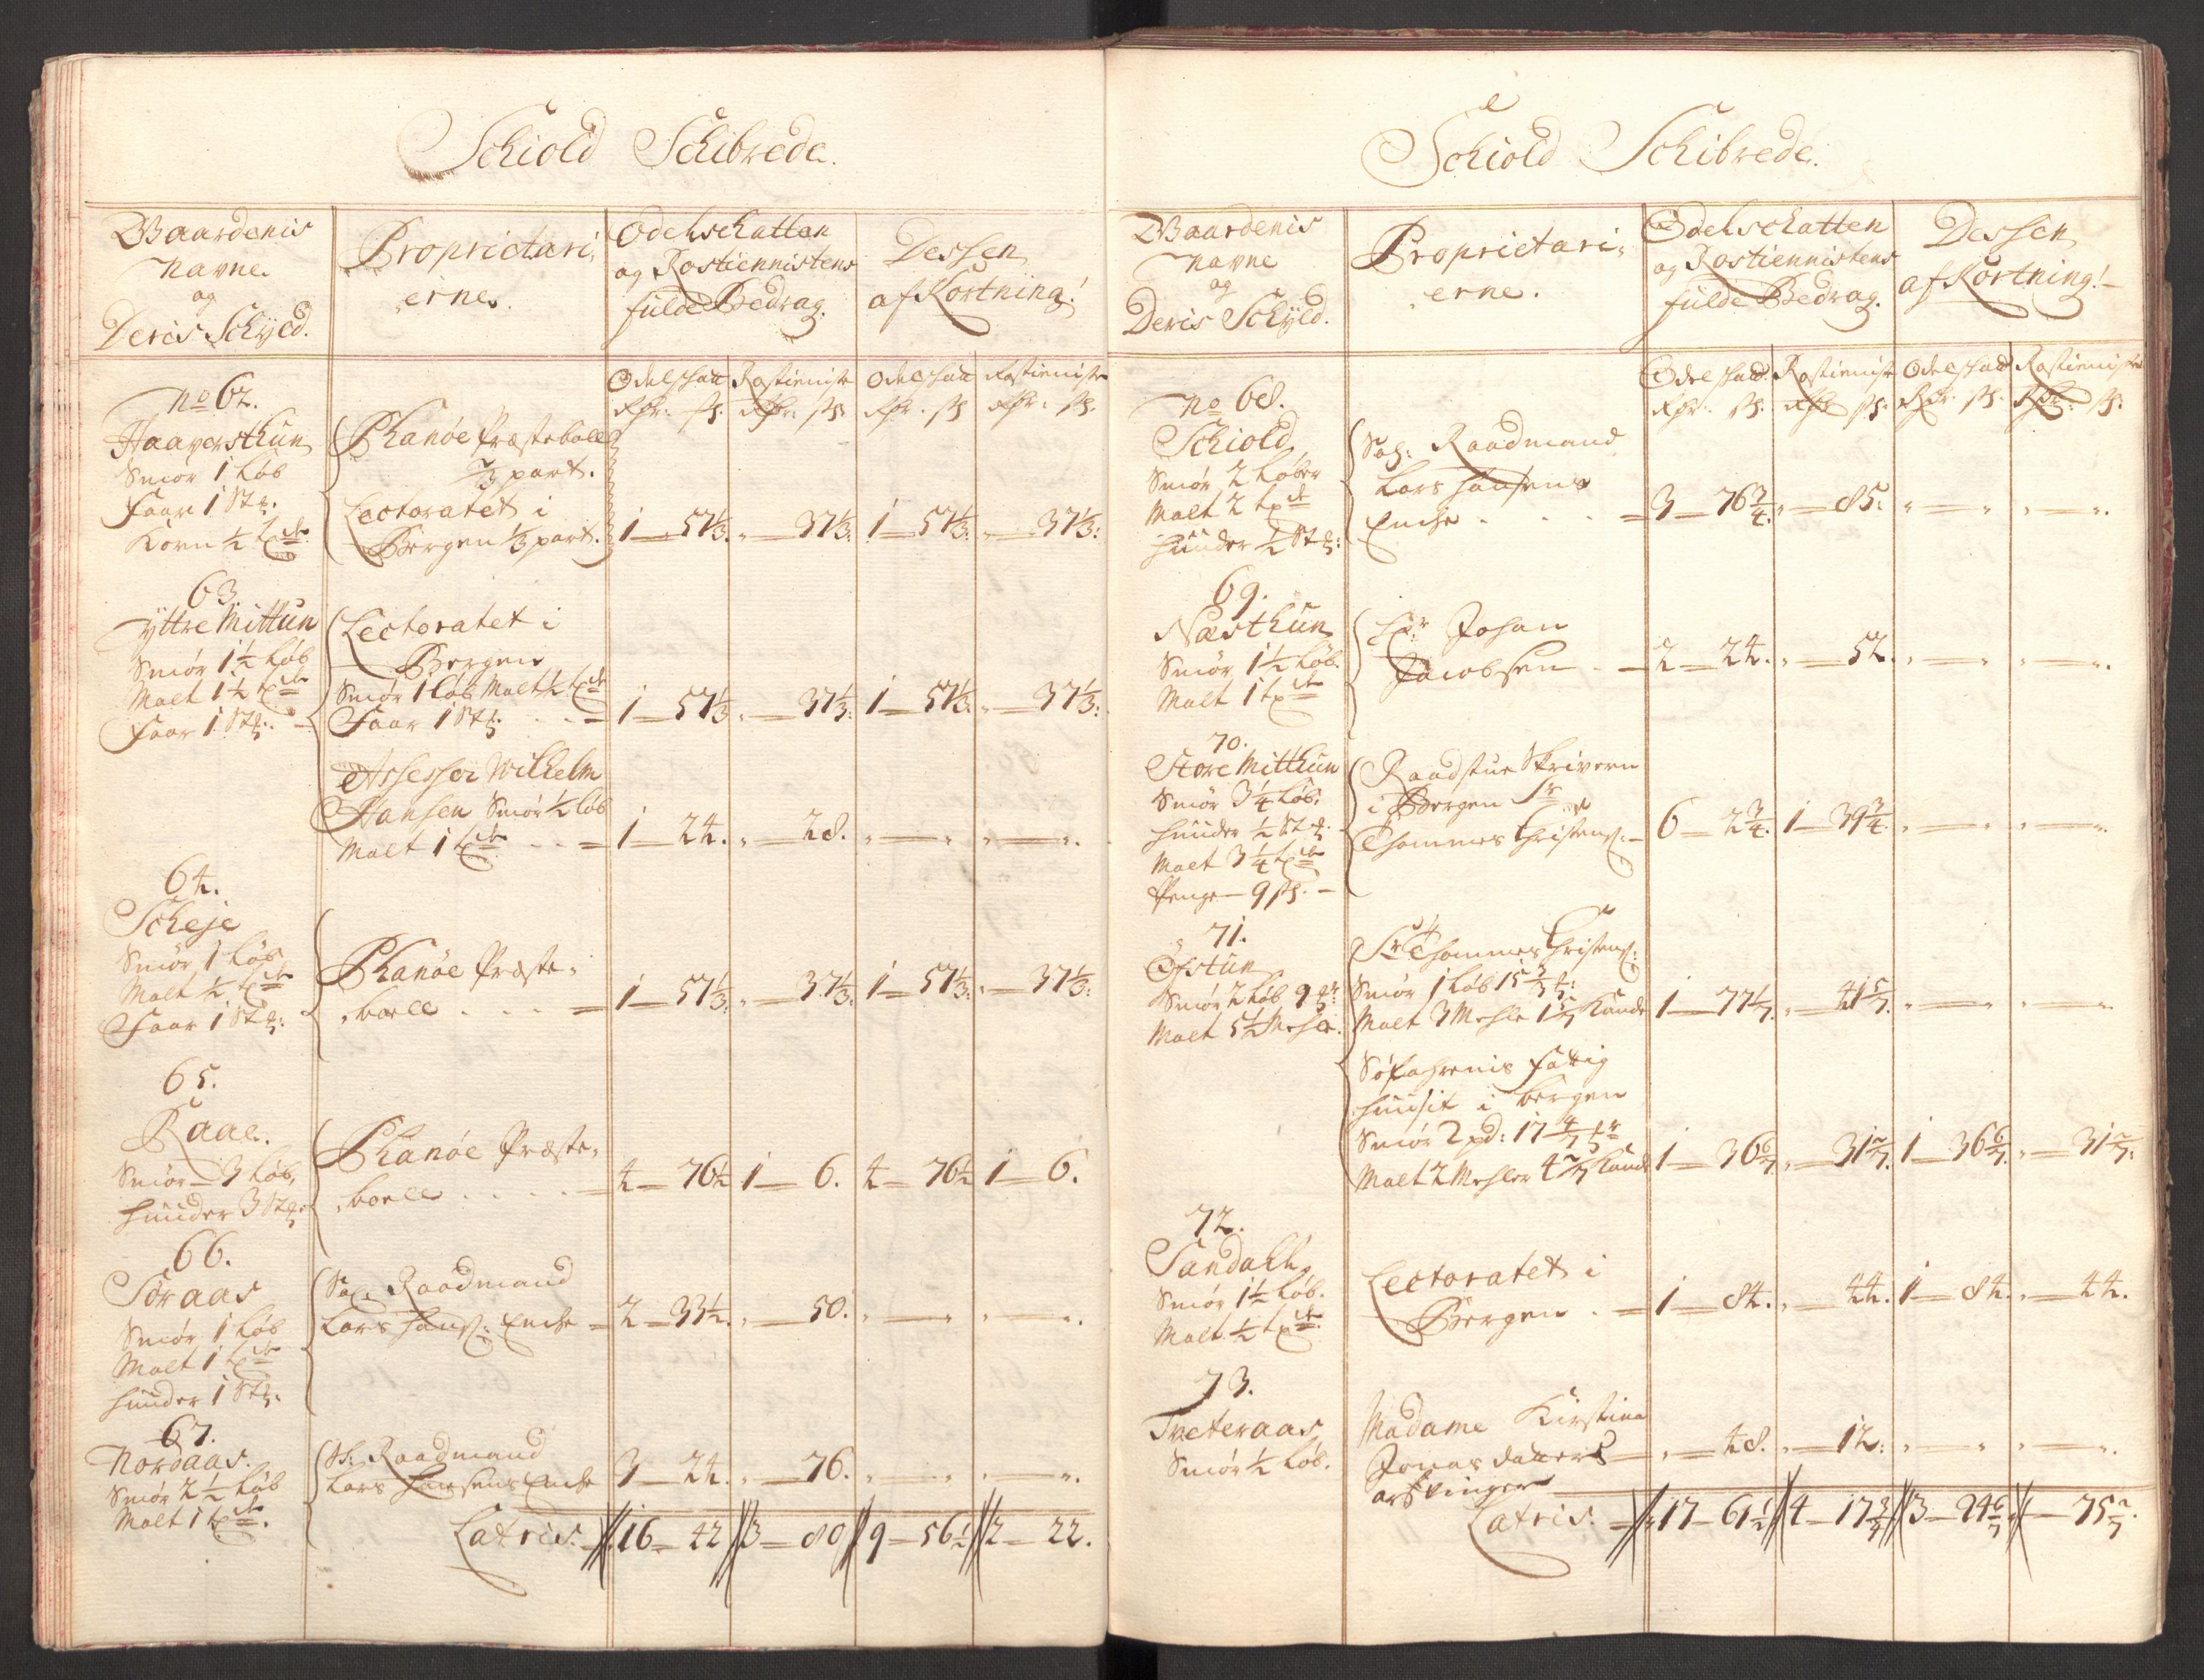 Schiold Schibrede.
Gaardenis
Navne
og
Deris Schÿld.
Proprietari,
erne.
Odelschatten
og Rostiennistens
fulde Bedrag.
Dessen
afKortning!
Odelschatt Rostieniste Odelschatt Rostieniste
Rdr: ß. Rdr: ß. Rdr: ß. Rdr: ß.
No 62.
Haaversthun
Smör 1 Löb
Faar 1 Stk.
Korn ½
Phanöe Præstebolle
⅔ part.
Lectoratet i
Bergen ⅓ part.
1 — 57⅓. „ — 37⅓: 1 — 57⅓. „ — 37⅓:
63.
Yttre Mitthun
Smör 1½ Löb
Malt 1½
Faar 1 Stk.
Lectoratet i
Bergen
Smör 1 Löb Malt ½
Faar 1 Stk.
1 — 57⅓ „ — 37⅓: 1 — 57⅓: „ — 37⅓:
Assessor Wilhelm
Hansen Smör ½ Löb
Malt 1
1 — 24. „ — 28. „ — „ „ — „
64.
Scheje
Smör 1 Löb
Malt ½
Faar 1 Stk:
Phanöe Præste,
bolle
1 — 57⅓: „ — 37⅓: 1 — 57⅓: „ — 37⅓:
65.
Raae.
Smör 3 Löb,
Huuder 3 Stk
Phanöe Præste,
bolle
4 — 76½ 1 — 6. 4 — 76½ 1 — 6.
66.
Söraas
Smör 1 Löb
Malt 1
Huuder 1 Stk.
Sal. Raadmand
Lars Hans: Enche
2 — 33½. „ — 50. „ — „ „ — „
67.
Nordaas.
Smör 2½ Löb
Malt 1
Sl: Raadmand
Lars Hansens Enche
3 — 24. „ — 76. „ — „ „ — „
Latris. 16 — 42 3 — 80 9 — 56½ 2 — 22.
Schiold Schibrede.
Gaardenis
Navne
og
Deris Schÿld.
Proprietari,
erne.
Odelschatten
og Rostiennistens
fulde Bedrag.
Dessen
afKortning!
Odelschatt Rostieniste Odelschatt Rostieniste
Rdr: ß. Rdr ß. Rdr. ß. Rdr: ß.
No 68.
Schiold
Smör 2 Löber
Malt 2
Huuder ½ Stk:
Sal: Raadmand
Lars Hansens
Enche
3 — 76¾. „ — 85. „ — „ „ — „
69.
Næsthun
Smör 1½ Löb.
Malt 1
Johan
Jacobsen
2 — 24. „ — 52. „ — „ „ — „
70.
Store Mitthun
Smör 3¼ Löb.
Huuder ½ Stk.
Malt 3¼
Penge 9 ß.
Raadstue Skrivern
i Bergen Sr
Thommes Christens:
6 — 2¾. 1 — 39¾. „ — „ „ — „
71.
Öfstun
Smör 2 Löb 9
Malt 5½ Mehle.
Sr Thommes Christens:
Smör 1 Löb 15 3/7
Malt 3 Mehle 1 5/7 Kande
1 — 77 1/7. „ — 41 5/7. „ — „ „ — „
Söfahrenis Fattig
Huusit i Bergen
Smör 2 pd: 17 4/7
Malt 2 Mehler 4 2/7 Kande
1 — 36 6/7. „ — 31 2/7. 1 — 36 6/7. „ — 31 2/7.
72.
Sandahl,
Smör 1½ Löb.
Malt ½
Lectoratet i
Bergen
1 — 84. „ — 44. 1 — 84. „ — 44.
73.
Tveteraas
Smör ½ Löb.
Madame Kirstina
Jonasdatters
arfvinger
„ — 48. „ — 12. „ — „ „ — „
Latris. 17 — 61½ 4 — 17 3/7 3 — 24 6/7 — 75 2/7.